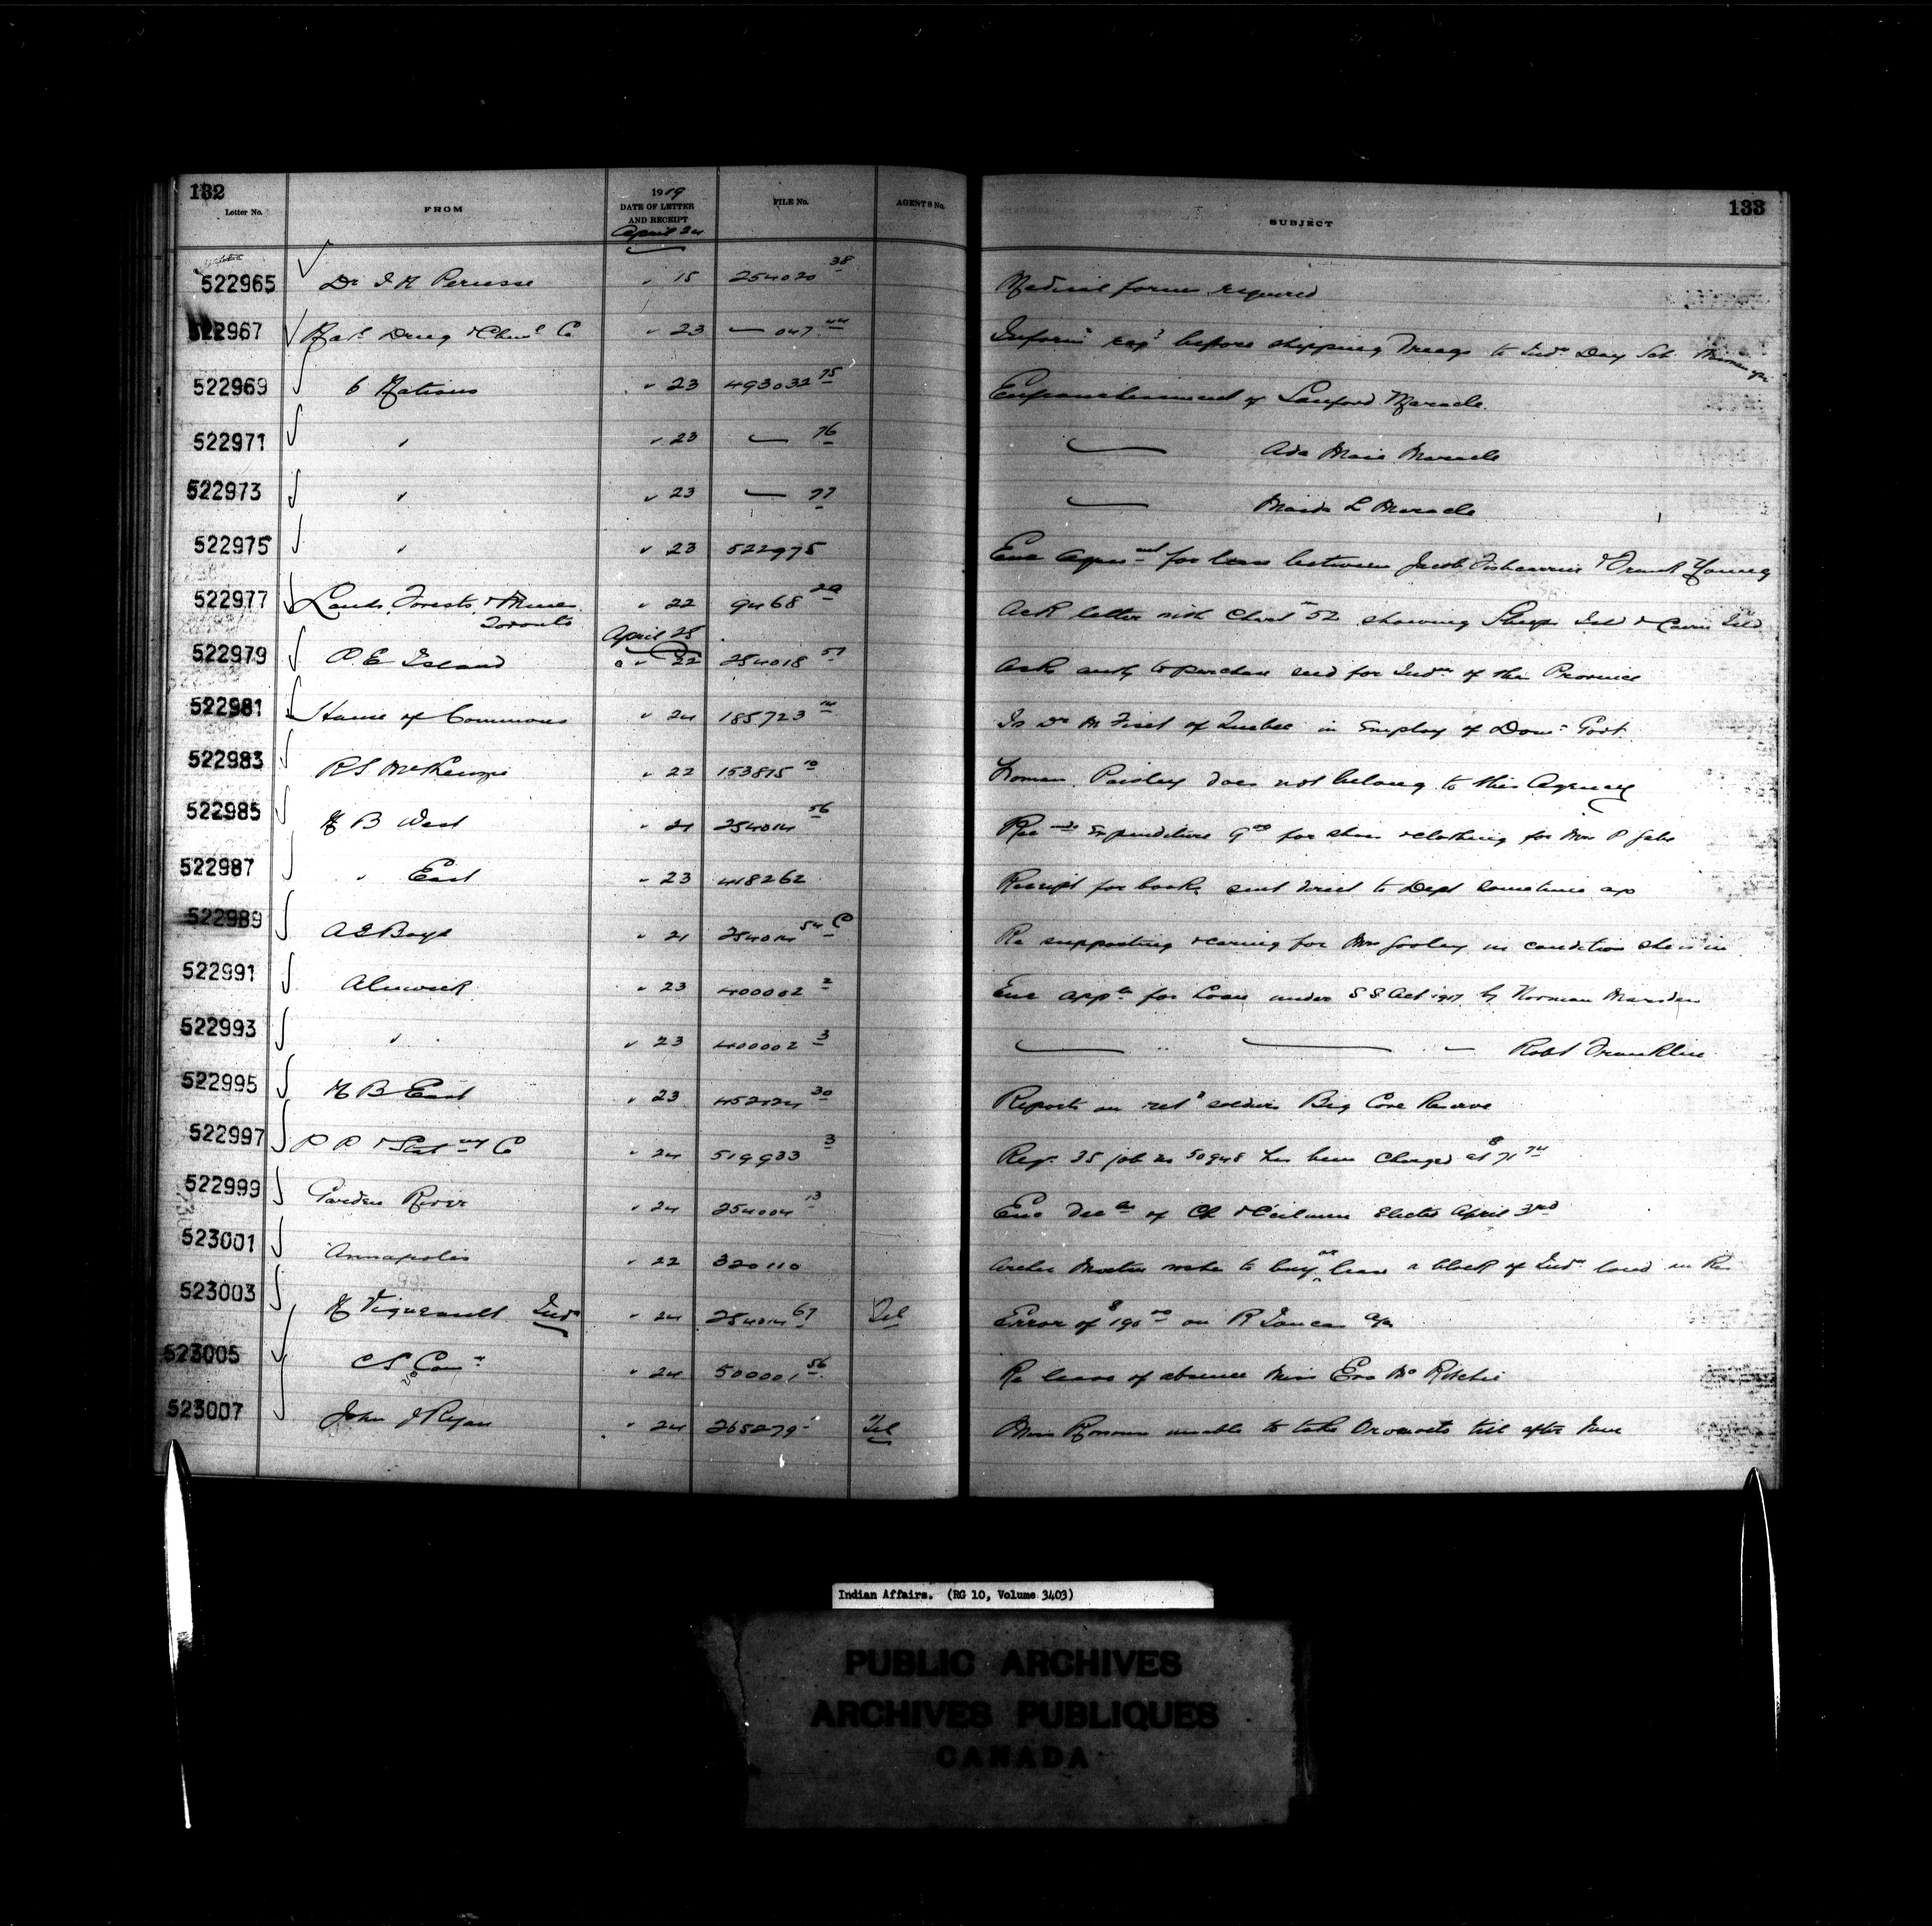 132
Letter No. FROM 1919 DATE OF LETTER AND RECEIPT FILE No. AGENTS No. SUBJECT 133
April 24
522965 Dr I H Perusse " 15 254020 38 Medical forms required
522967 Natl Drug & Chem Co " 23 — 047 44 Inform reqd before shipping Drugs to Ind Day Sch
522969 6 Nations " 23 493032 75 Enfranchisement of Sanford Maracle
522971 " " 23 — 76 — Ada Maracle
522973 " " 23 — 77 — L Maracle
522975 " " 23 522975 Enc Agreemt for lease between Jacob & Frank Young
522977 Lands, Forests, & Mines Toronto " 22 9468 20 Ack letter with Chart 52 showing Sheep Isld & Isld
April 25
522979 P. E Island " 22 254018 57 Ask auth to purchase seed for Inds of the Province
522981 House of Commons " 24 185723 14 Is Dr M Fiset of Quebec in Employ of Dom Govt
522983 R S McKenzie " 22 153815 10 Paisley does not belong to this Agency
522985 N B West " 21 254014 56 Rec expenditure 9 00 for shoes & clothing for Mrs P
522987 " East " 23 418262 Receipt for books sent direct to Dept sometime ago
522989 A E Boyd " 21 254014 54 C Re supporting & caring for Mrs in condition she is in
522991 Alnwick " 23 400002 2 Enc app for Loan under S S Act 1917 by Norman Marsden
522993 " " 23 400002 3 — — — Robt Franklin
522995 N B East " 23 452124 30 Reports on retd soldiers Big Cove Reserve
522997 P P & Staty Co " 24 519933 3 Reqn 35 job no 50948 has been charged at $71 74
522999 Garden River " 24 254004 13 Enc Dec of Ch & C'cilmen Elected April 3rd
523001 Annapolis " 22 320110 wishes to buy or lease a block of Ind land in
523003 N Vigneault " 24 254014 67 Tel Error of $190 00 on R a/c
523005 C S Com " 24 500001 56 Re leave of absence Miss Eva McRitchie
523007 John J Ryan " 24 265279 Tel Miss unable to take till after June
Indian Affairs. (RG 10, Volume 3403)
PUBLIC ARCHIVES
ARCHIVES PUBLIQUES
CANADA